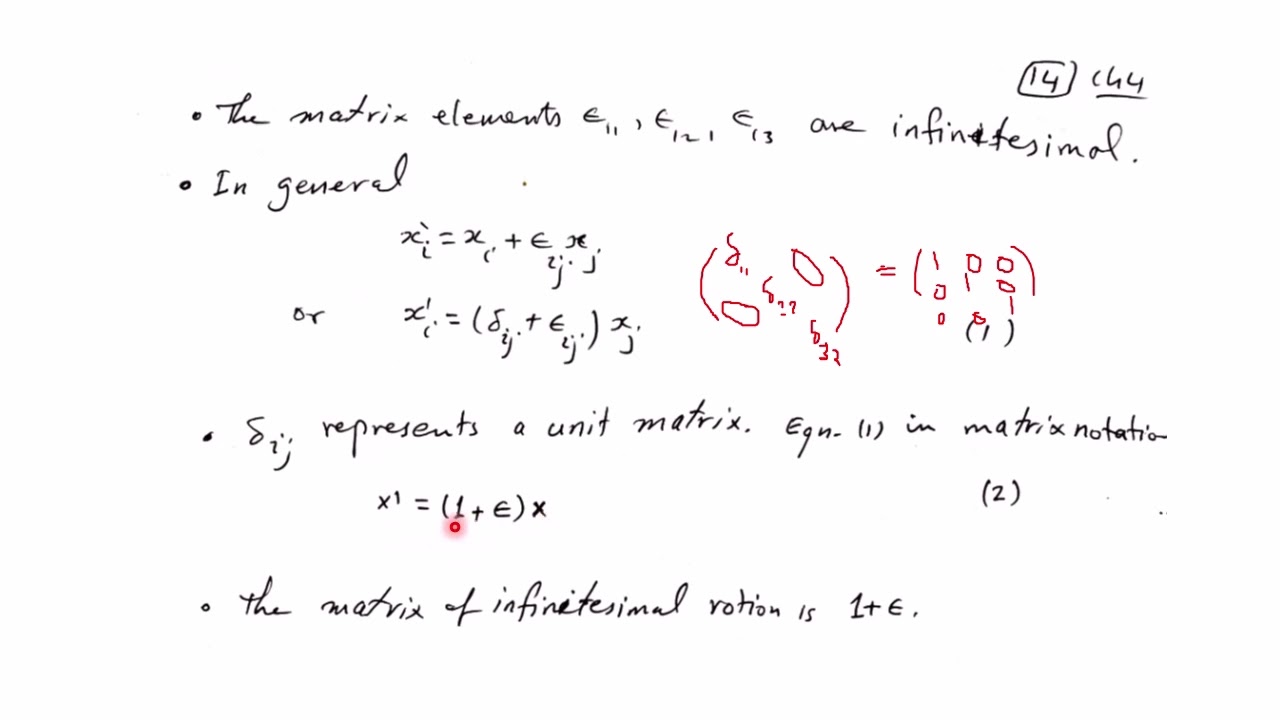 14 ch4
• The matrix elements ϵ₁₁, ϵ₁₂, ϵ₁₃ are infinitesimal.
• In general
xᵢ' = xᵢ + ϵᵢⱼ xⱼ
or xᵢ' = (δᵢⱼ + ϵᵢⱼ) xⱼ (1)
(δ₁₁ 0
δ₂₂
0 δ₃₃) = (1 0 0
0 1 0
0 0 1)
• δᵢⱼ represents a unit matrix. Eqn. (1) in matrix notation
x' = (1 + ϵ) x (2)
• the matrix of infinitesimal rotion is 1 + ϵ.